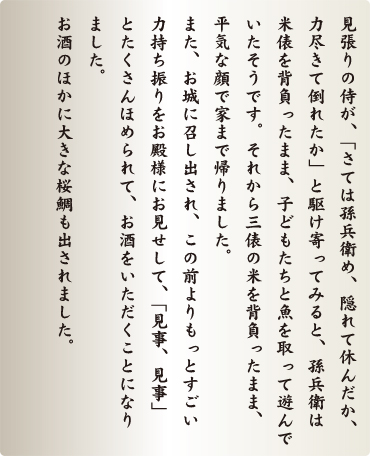 見張りの侍が、「さては孫兵衛め、隠れて休んだか、
力尽きて倒れたか」と駆け寄ってみると、孫兵衛は
米俵を背負ったまま、子どもたちと魚を取って遊んで
いたそうです。それから三俵の米を背負ったまま、
平気な顔で家まで帰りました。
また、お城に召し出され、この前よりもっとすごい
力持ち振りをお殿様にお見せして、「見事、見事」
とたくさんほめられて、お酒をいただくことになり
ました。
お酒のほかに大きな桜鯛も出されました。